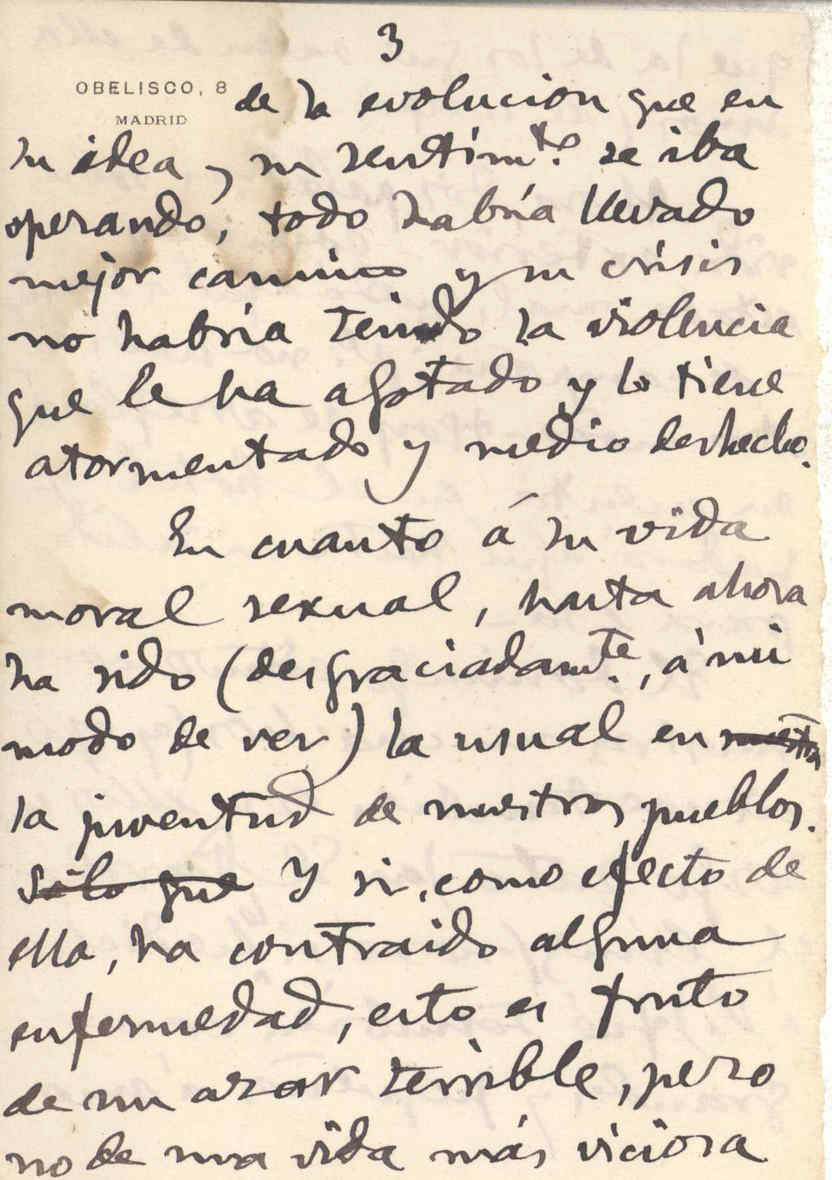 3
OBELISCO, 8
MADRID
de la evolucion que en
su idea y su sentimto. se iba
operando, todo habría llevado
mejor camino y su crisis
no habría tenido la violencia
que le ha agotado y lo tiene
atormentado y medio deshecho.
En cuanto á su vida
moral sexual, hasta ahora
ha sido (desgraciadamte., á mi
modo de ver) la usual en nuestra
la juventud de nuestros pueblos.
Sólo que Y si, como efecto de
ella, ha contraido alguna
enfermedad, esto es fruto
de un azar terrible, pero
no de una vida más viciosa